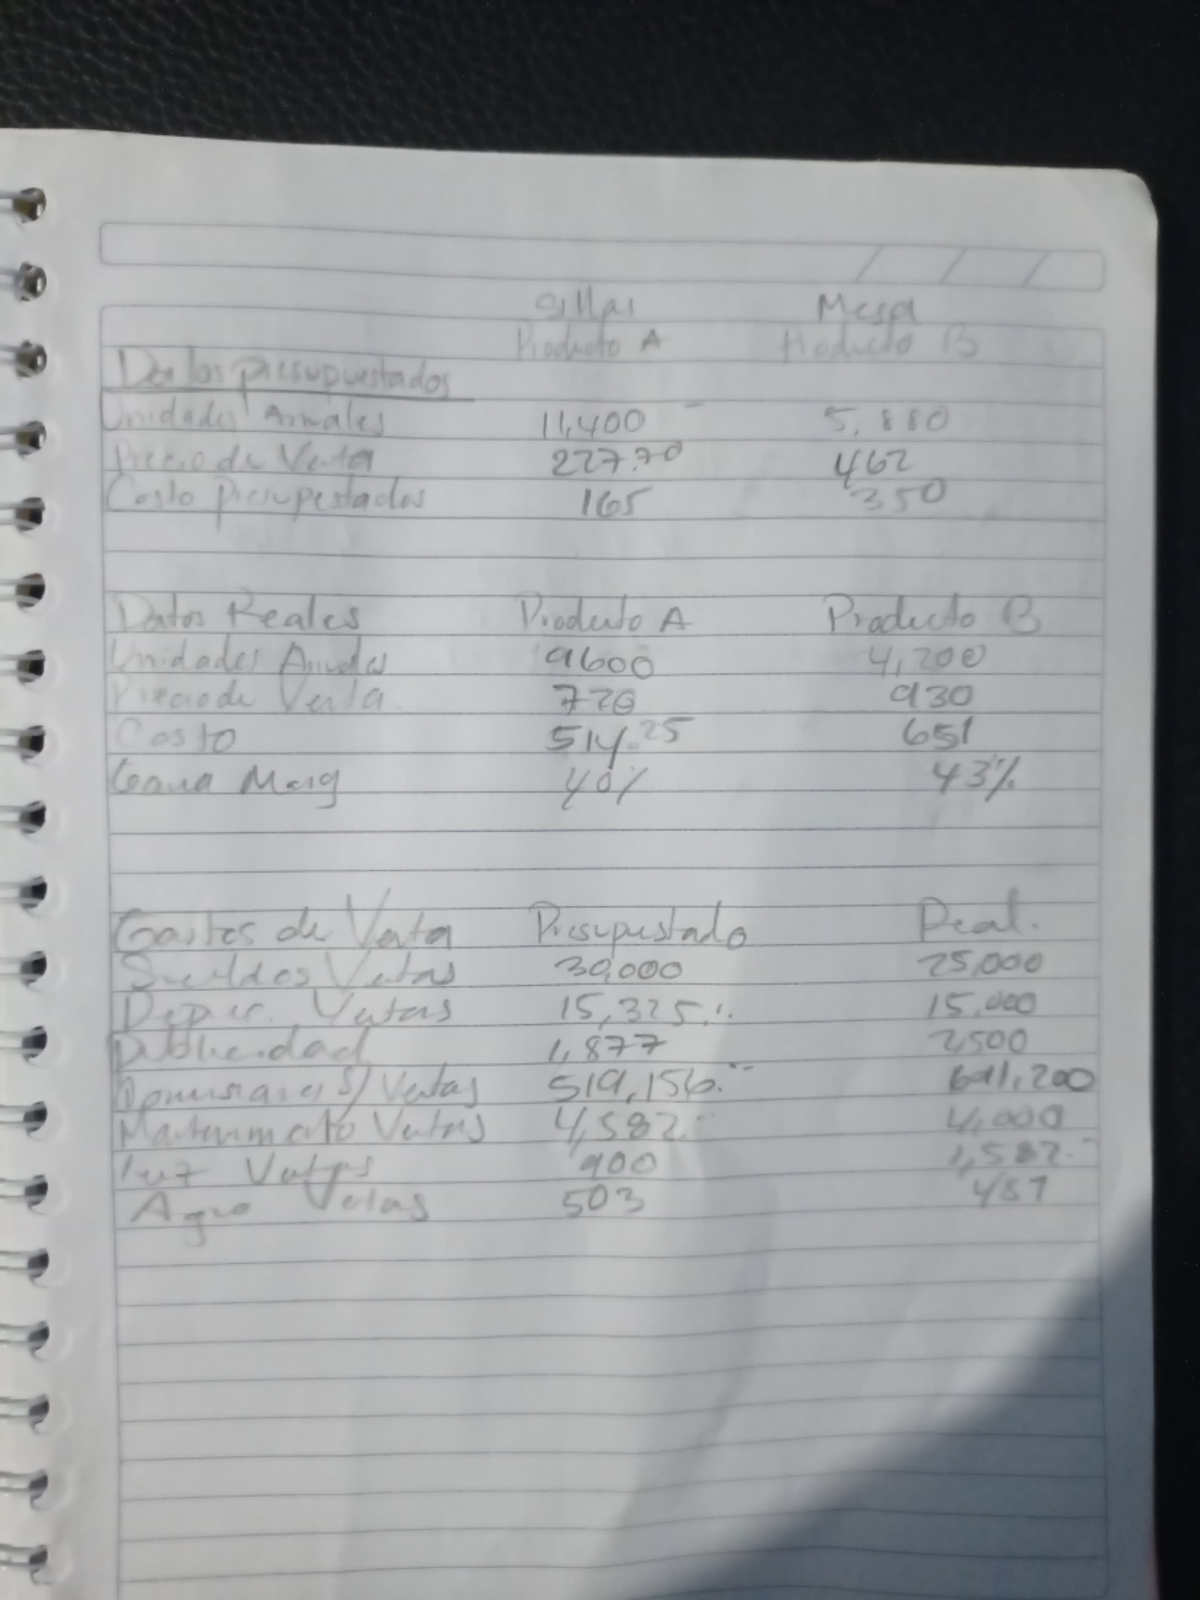 Sillas Mesa
Producto A Producto B
Datos presupuestados
Unidades Anuales 11,400 5,880
Precio de Venta 227.70 462
Costo Presupestados 165 350
Datos Reales Producto A Producto B
Unidades Anuales 9600 4,200
Precio de Venta. 720 930
Costo 514.25 651
Gana Marg 40% 43%
Gastos de Venta Presupuestado Real.
Sueldos Vetas 30,000 25,000
Deprec. Vetas 15,325 15,000
Publicidad 1,877 2,500
S/ Ventas 519,156. 691,200
Mantenimiento Ventas 4,582 4,000
Luz Ventas 900 1,582.
Agua Vetas 503 457